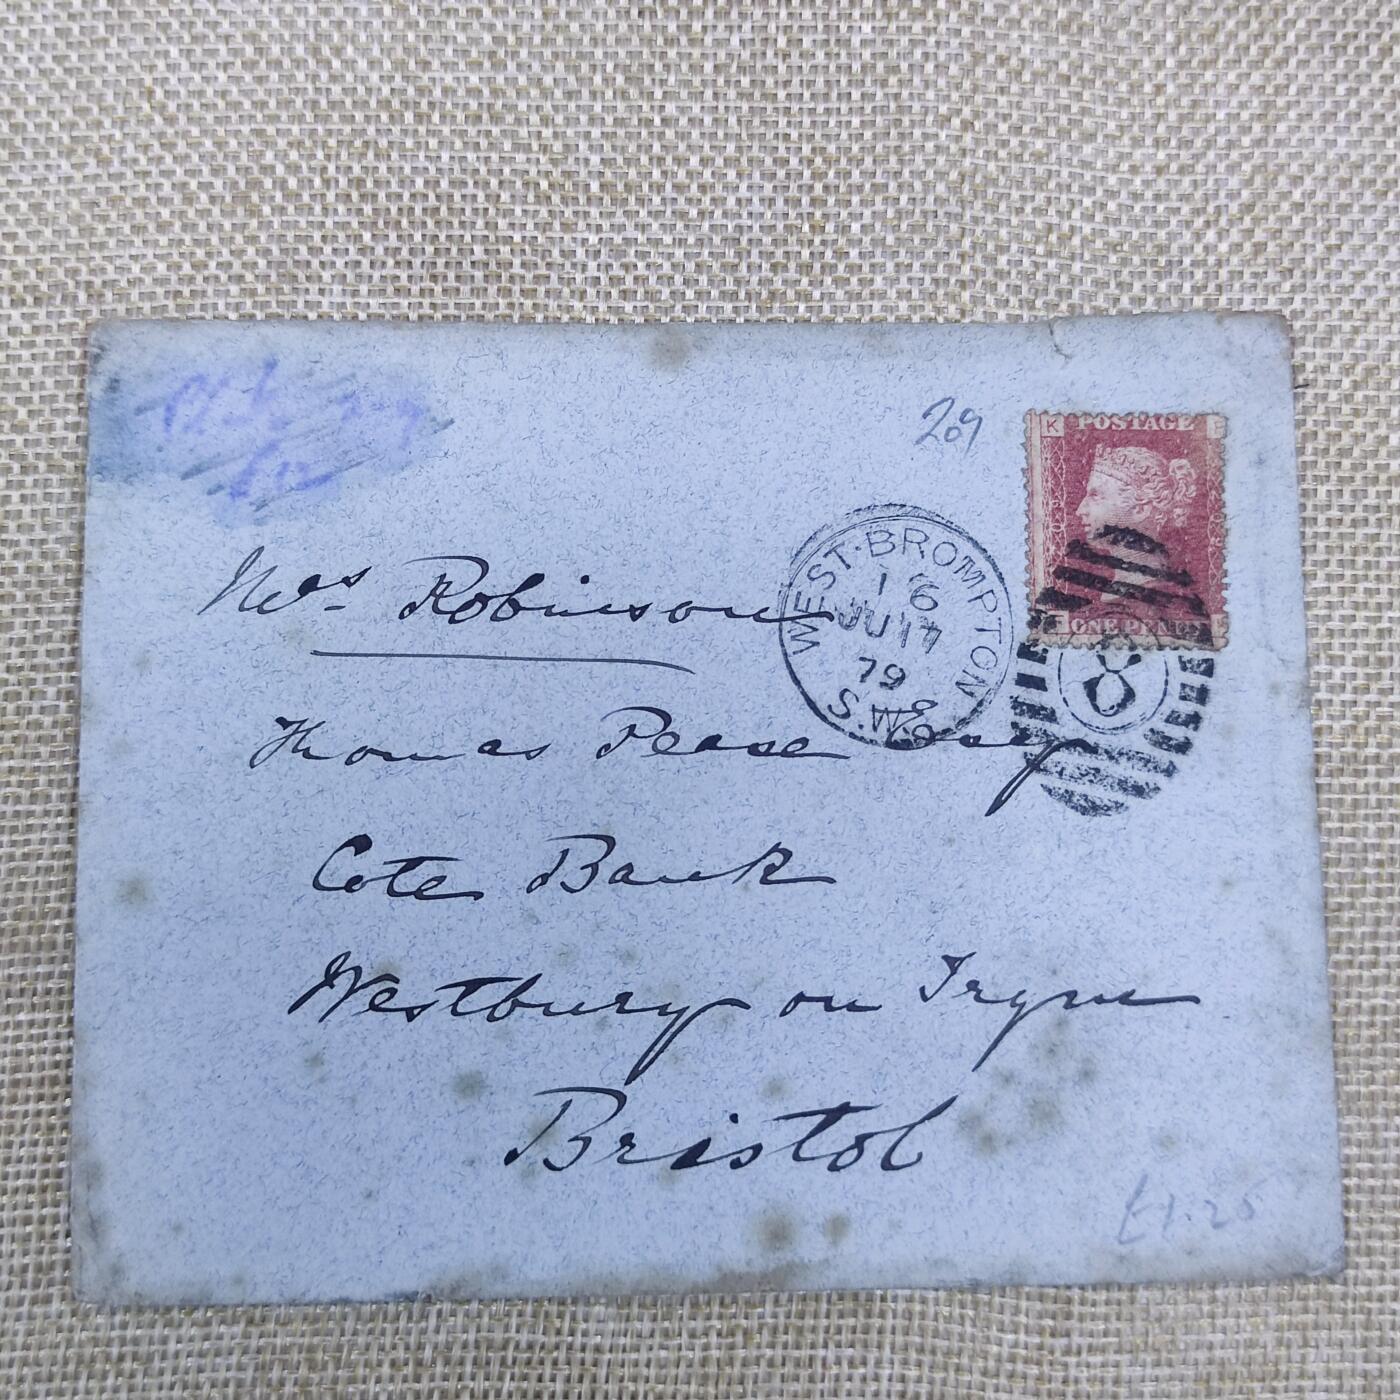 209
K POSTAGE E
E ONE PENNY K
WEST·BROMPTON
16
JU 17
79
S.W.
8
Mrs. Robinson
Thomas Pease Esq
Cote Bank
Westbury on Trym
Bristol
£1.25